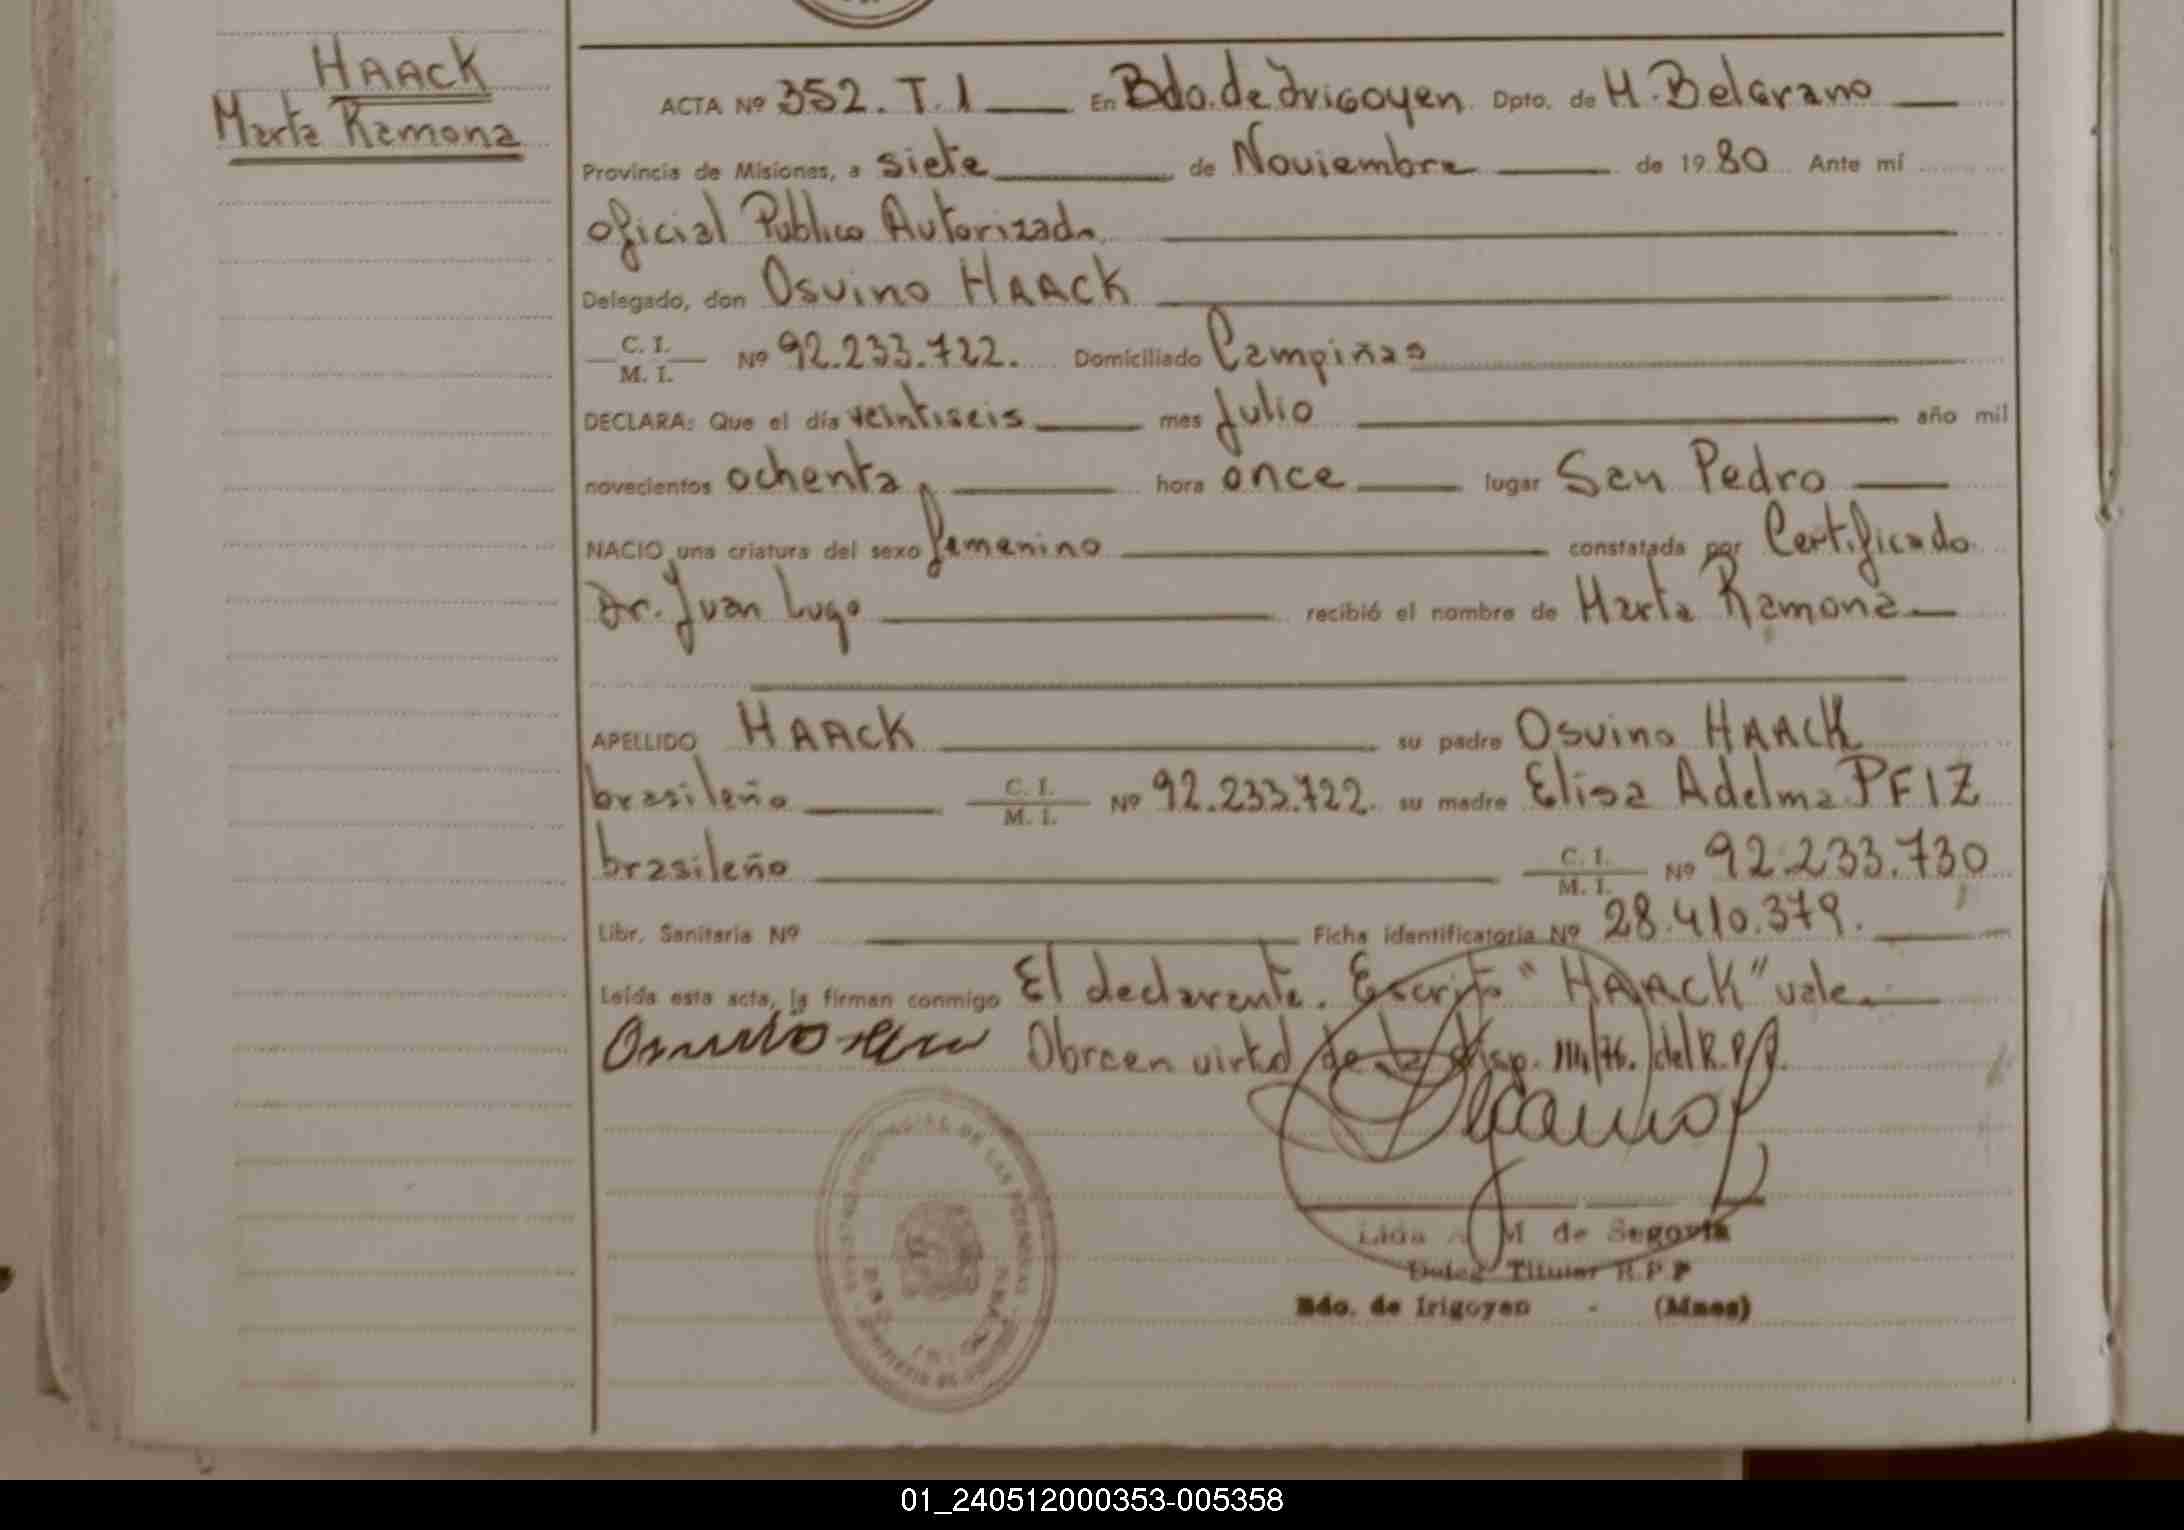 HAACK
Marta Ramona
ACTA Nº 352. T. I En Bdo. de Irigoyen. Dpto. de M. Belgrano
Provincia de Misiones, a siete de Noviembre de 1980 Ante mí
oficial Publico Autorizado
Delegado, don Osvino HAACK
C. I. / M. I. Nº 92.233.722. Domiciliado Campiñas
DECLARA: Que el día veintiseis mes Julio año mil
novecientos ochenta, hora once lugar San Pedro
NACIO una criatura del sexo femenino constatada por Certificado
Dr. Juan Lugo recibió el nombre de Marta Ramona
APELLIDO HAACK su padre Osvino HAACK
brasileño C. I. / M. I. Nº 92.233.722. su madre Elisa Adelma PFIZ
brasileño C. I. / M. I. Nº 92.233.730
Libr. Sanitaria Nº Ficha identificatoria Nº 28.410.379.
Leída esta acta, la firman conmigo El declarante. Escrito "HAACK" vale.
Obrc en virtd de la disp. 111/76. del R.P.P.
M de Segovia
Deleg. Titular R.P.P
Bdo. de Irigoyen - (Mnes)
01_240512000353-005358